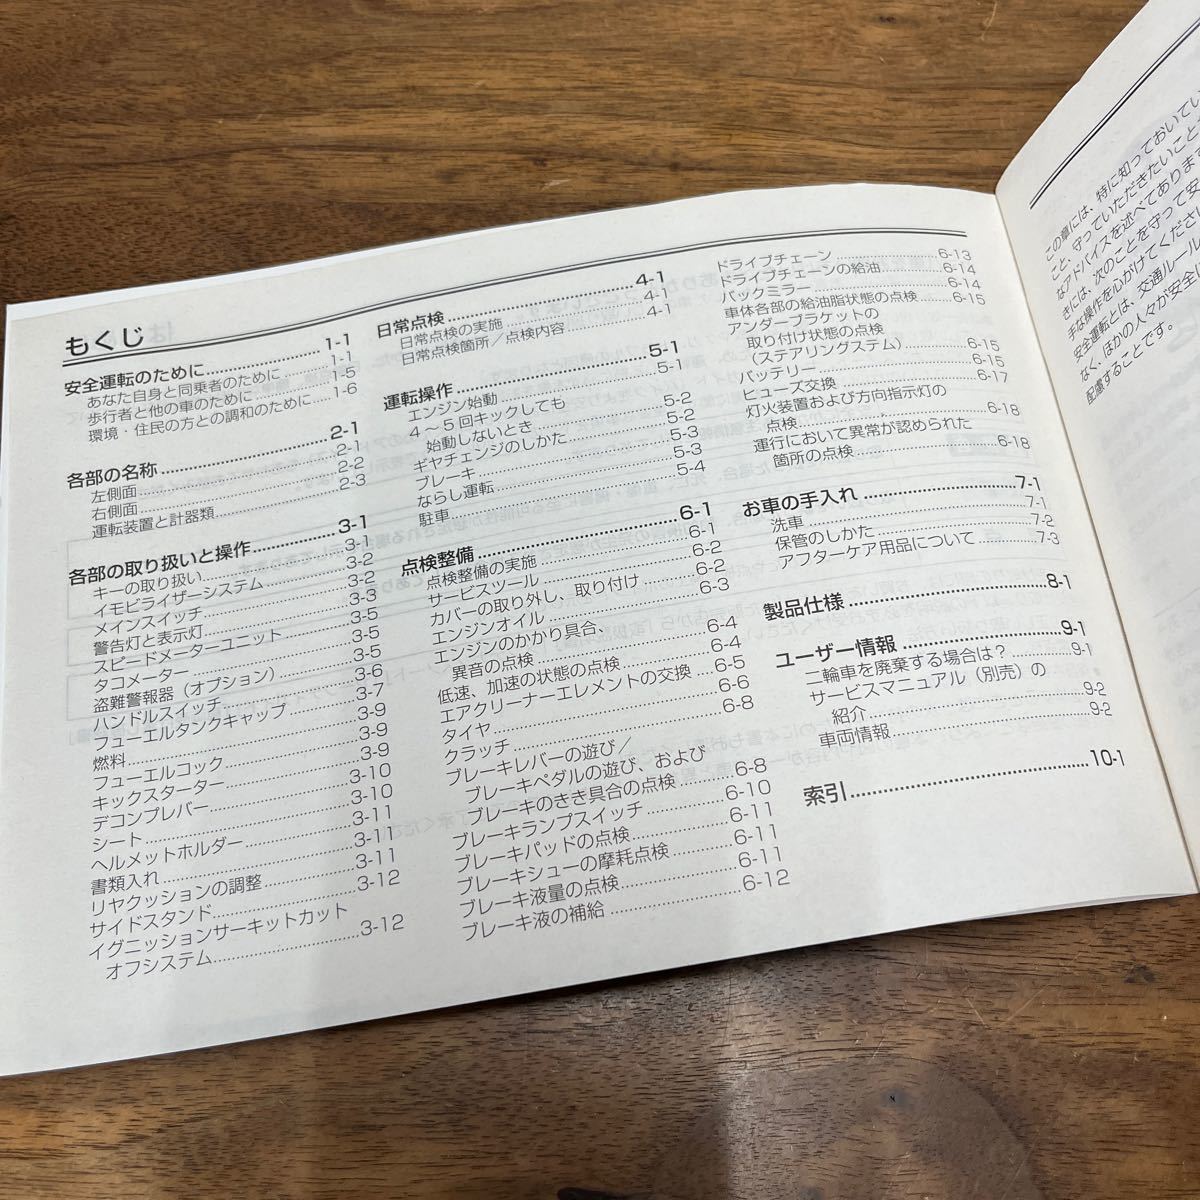 もくじ
安全運転のために 1-1
あなた自身と同乗者のために 1-1
歩行者と他の車のために 1-5
環境・住民の方との調和のために 1-6
各部の名称 2-1
左側面 2-1
右側面 2-2
運転装置と計器類 2-3
各部の取り扱いと操作 3-1
キーの取り扱い 3-1
イモビライザーシステム 3-2
メインスイッチ 3-2
警告灯と表示灯 3-3
スピードメーターユニット 3-5
タコメーター 3-5
盗難警報器（オプション） 3-5
ハンドルスイッチ 3-6
フューエルタンクキャップ 3-7
燃料 3-9
フューエルコック 3-9
キックスターター 3-9
デコンプレバー 3-10
シート 3-10
ヘルメットホルダー 3-11
書類入れ 3-11
リヤクッションの調整 3-11
サイドスタンド 3-12
イグニッションサーキットカット
オフシステム 3-12
日常点検 4-1
日常点検の実施 4-1
日常点検箇所／点検内容 4-1
運転操作 5-1
エンジン始動 5-1
4～5回キックしても
始動しないとき 5-2
ギヤチェンジのしかた 5-2
ブレーキ 5-3
ならし運転 5-3
駐車 5-4
点検整備 6-1
点検整備の実施 6-1
サービスツール 6-2
カバーの取り外し、取り付け 6-2
エンジンオイル 6-3
エンジンのかかり具合
異音の点検 6-4
低速、加速の状態の点検 6-4
エアクリーナーエレメントの交換 6-5
タイヤ 6-6
クラッチ 6-8
ブレーキレバーの遊び／
ブレーキペダルの遊び、および
ブレーキのきき具合の点検 6-8
ブレーキランプスイッチ 6-10
ブレーキパッドの点検 6-11
ブレーキシューの摩耗点検 6-11
ブレーキ液量の点検 6-11
ブレーキ液の補給 6-12
ドライブチェーン 6-13
ドライブチェーンの給油 6-14
バックミラー 6-14
車体各部の給油脂状態の点検 6-15
アンダーブラケットの
取り付け状態の点検
（ステアリングステム） 6-15
バッテリー 6-15
ヒューズ交換 6-17
灯火装置および方向指示灯の
点検 6-18
運行において異常が認められた
箇所の点検 6-18
お車の手入れ 7-1
洗車 7-1
保管のしかた 7-2
アフターケア用品について 7-3
製品仕様 8-1
ユーザー情報 9-1
二輪車を廃棄する場合は？ 9-1
サービスマニュアル（別売）の
紹介 9-2
車両情報 9-2
索引 10-1
この章には、特に知っておいてい
こと、守っていただきたいこと
なアドバイスを述べてあります
きには、次のことを守って安
手な操作を心がけてくださ
安全運転とは、交通ルール
なく、ほかの人々が安全に
配慮することです。